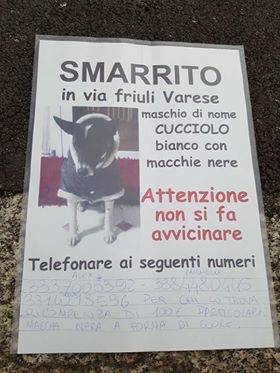 SMARRITO
in via friuli Varese
maschio di nome
CUCCIOLO
bianco con
macchie nere
Attenzione
non si fa
avvicinare
Telefonare ai seguenti numeri
ALEX MICHELLE
PER CHI LO TROVA
RICOMPENSA DI 100€ PARTICOLARE:
MACCHIA NERA A FORMA DI CUORE.